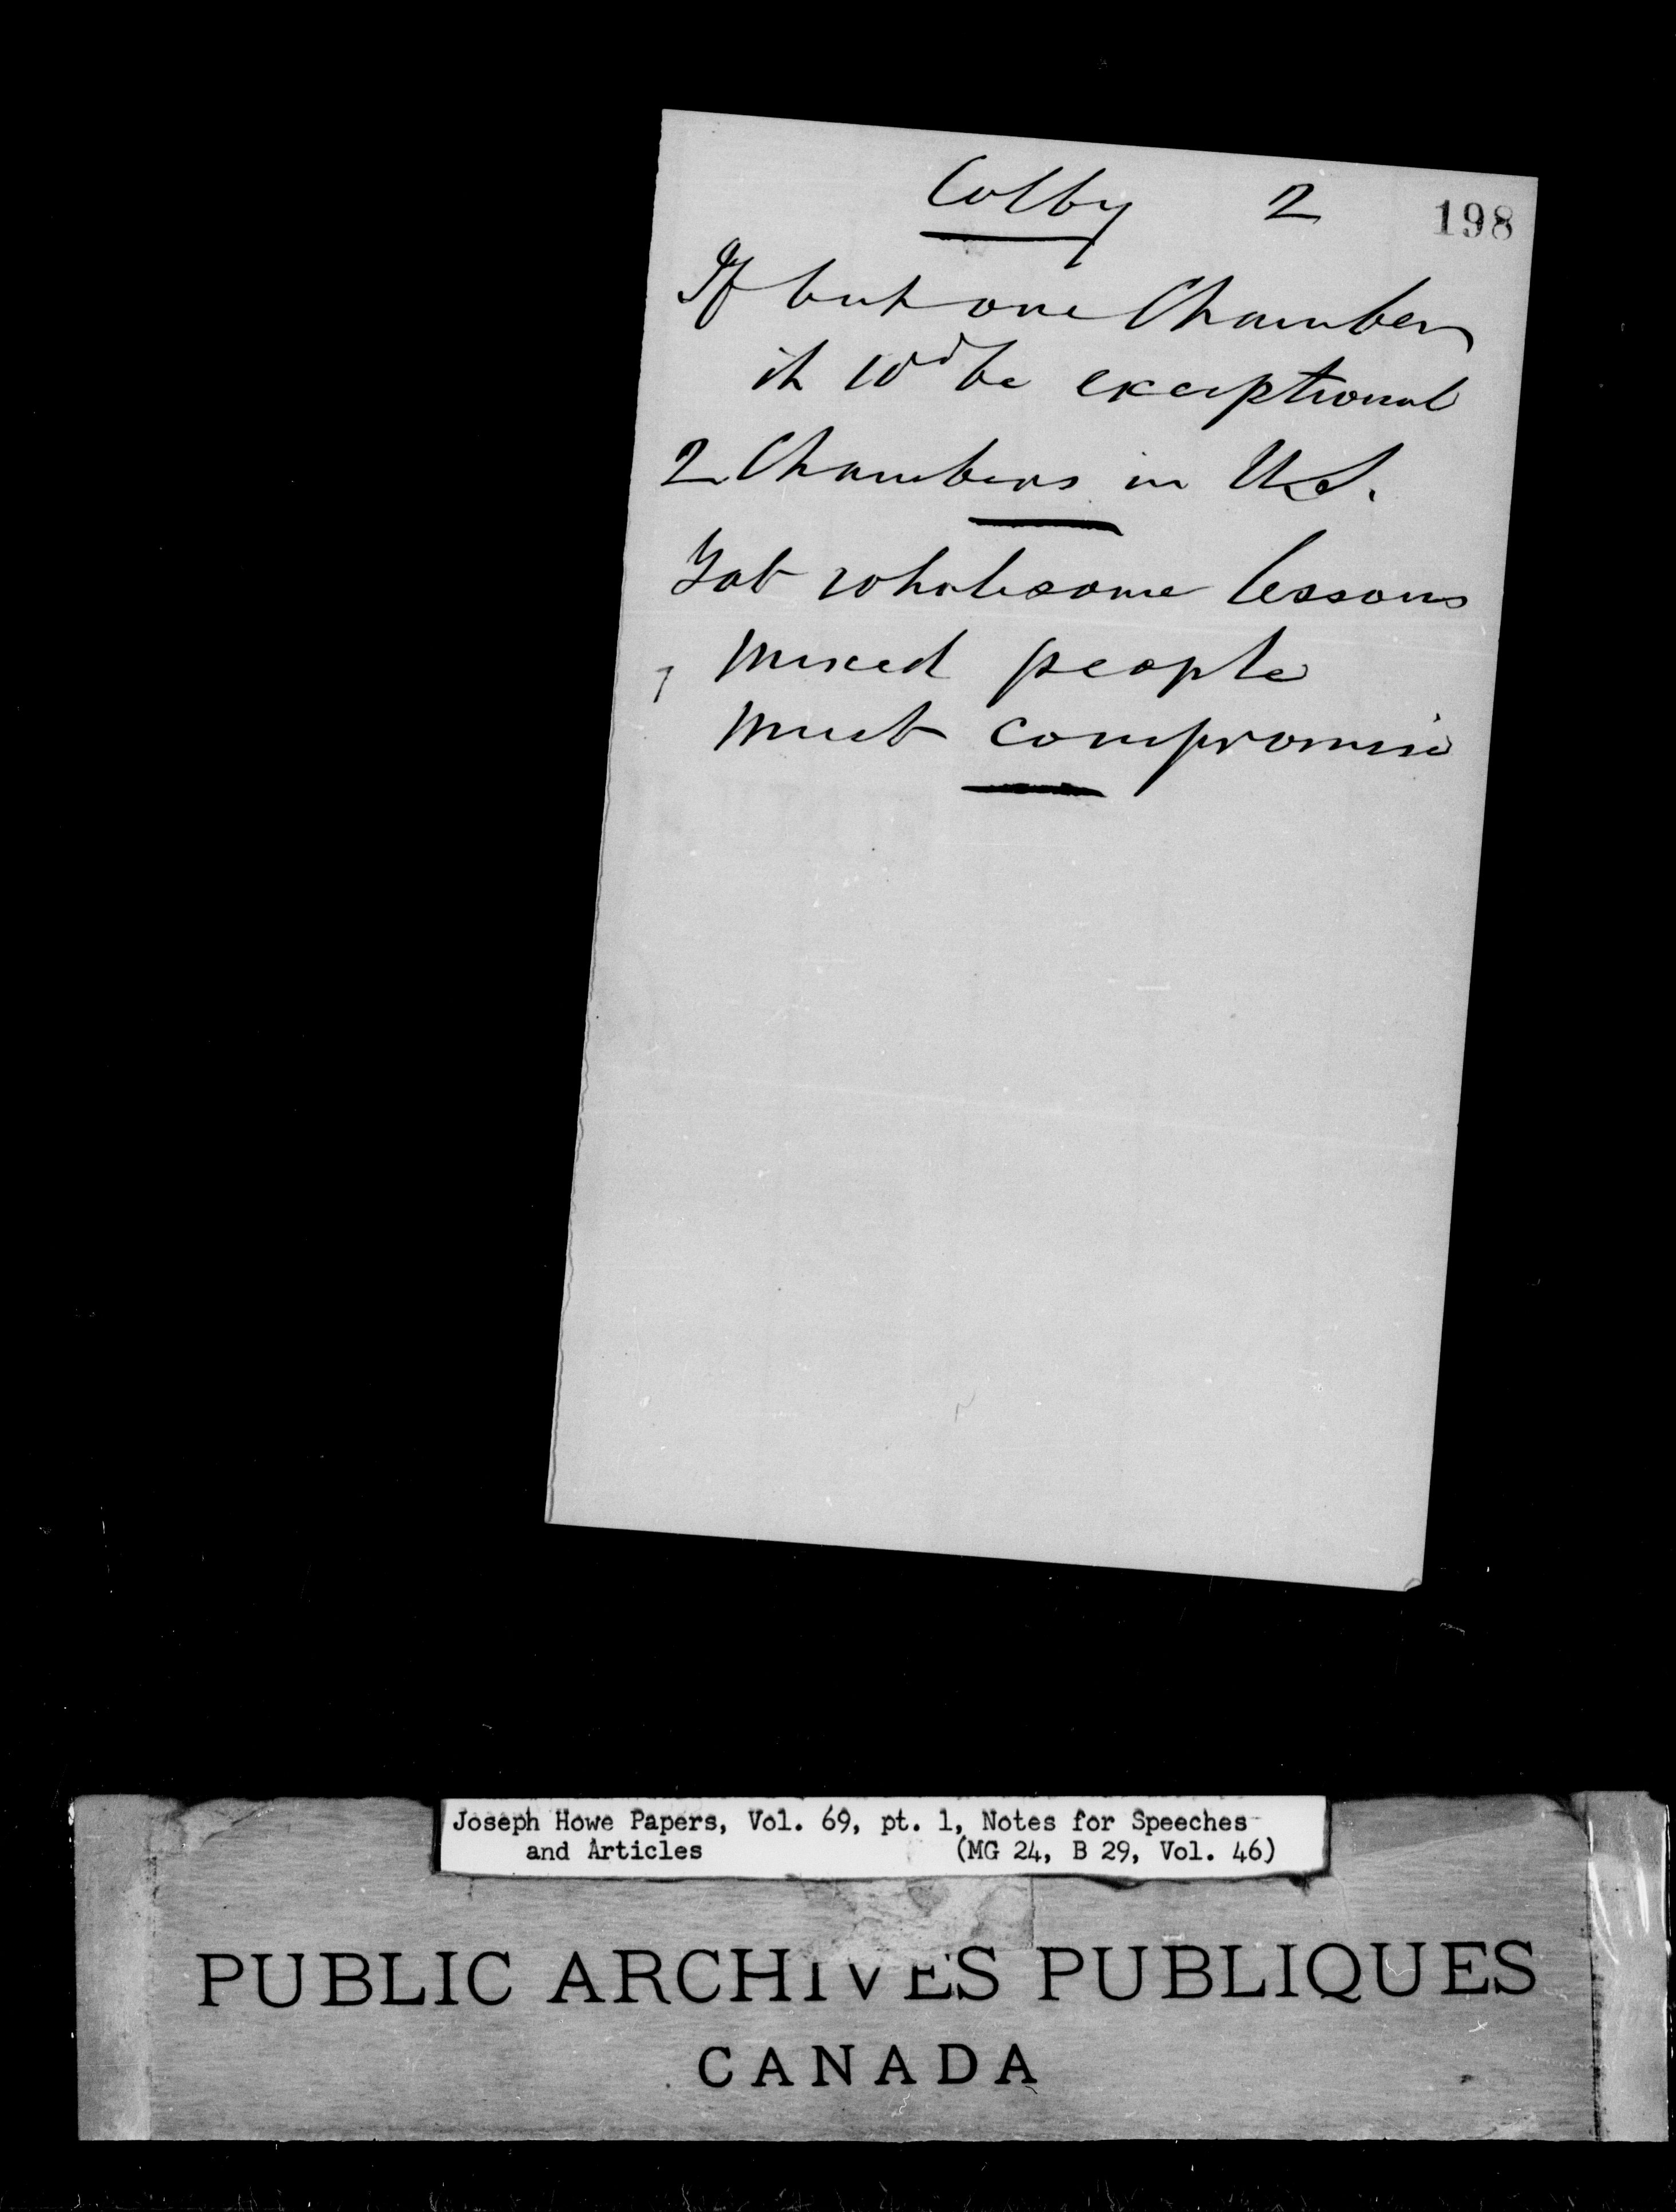 Colby 2 198
If but one Chamber
it wd be exceptional
2 Chambers in U.S.
wholesome lessons
mixed people
must compromise
Joseph Howe Papers, Vol. 69, pt. 1, Notes for Speeches
and Articles (MG 24, B 29, Vol. 46)
PUBLIC ARCHIVES PUBLIQUES
CANADA